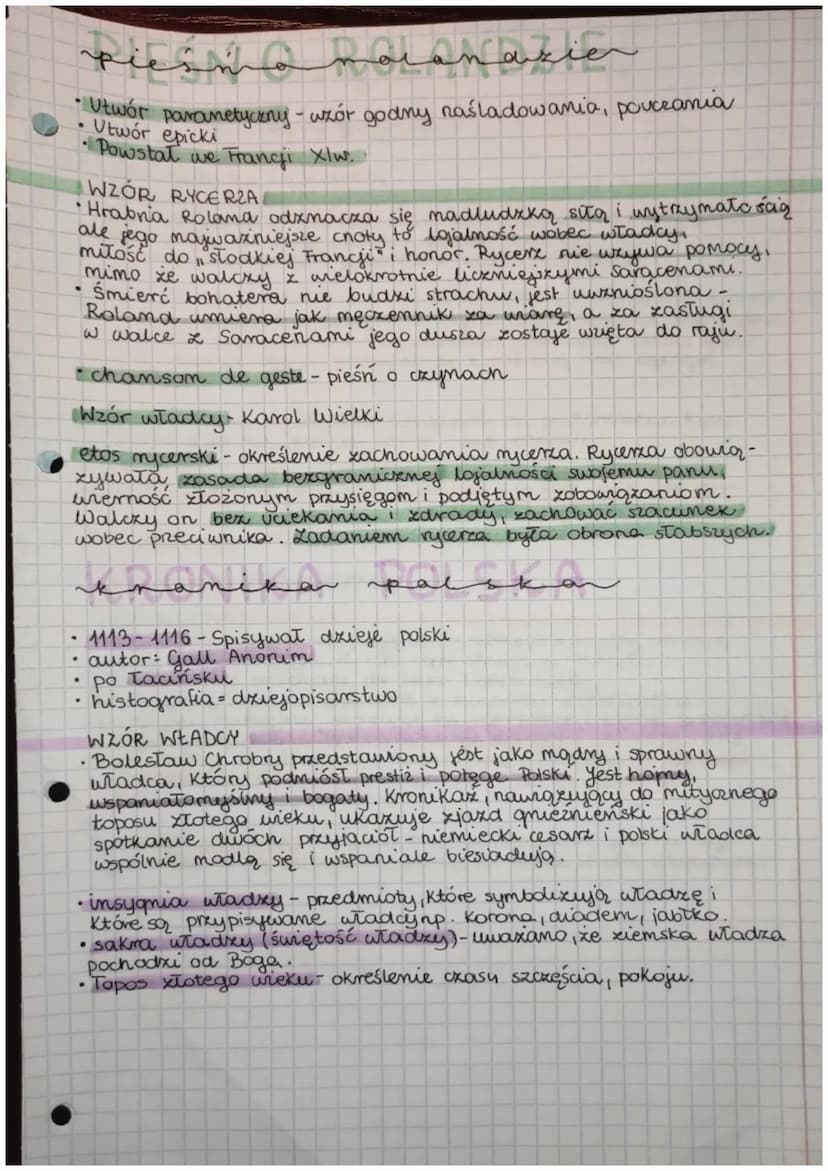 PIEŚŃ O ROLANDZIE
pieśń o rolandzie
• Utwór parametyczny - wzór godny naśladowania, pouczania
• Utwór epicki
• Powstał we Francji XIw.
WZÓR RYCERZA
• Hrabnia Roland odznacza się nadludzką siłą i wytrzymałością
ale jego najważniejsze cnoty to lojalność wobec władcy,
miłość do „słodkiej Francji" i honor. Rycerz nie wzywa pomocy,
mimo że walczy z wielokrotnie liczniejszymi Saracenami.
• Śmierć bohatera nie budzi strachu, jest uwznioślona -
Roland umiera jak męczennik za wiarę, a za zasługi
w walce z Saracenami jego dusza zostaje wzięta do raju.
• chanson de geste - pieśń o czynach
Wzór władcy - Karol Wielki
etos rycerski - określenie zachowania rycerza. Rycerza obowią-
zywała zasada bezgranicznej lojalności swojemu panu,
wierność złożonym przysięgom i podjętym zobowiązaniom.
Walczy on bez uciekania i zdrady, zachować szacunek
wobec przeciwnika. Zadaniem rycerza była obrona słabszych.
KRONIKA POLSKA
kronika polska
• 1113-1116 - Spisywał dzieje polski
• autor: Gall Anonim
• po łacińsku
• histografia = dziejopisarstwo
WZÓR WŁADCY
• Bolesław Chrobry przedstawiony jest jako mądry i sprawny
władca, który podniósł prestiż i potęgę Polski. Jest hojny,
wspaniałomyślny i bogaty. Kronikaż, nawiązujący do mitycznego
toposu złotego wieku, ukazuje zjazd gnieźnieński jako
spotkanie dwóch przyjaciół - niemiecki cesarz i polski władca
wspólnie modlą się i wspaniale biesiadują.
• insygnia władzy - przedmioty, które symbolizują władzę i
które są przypisywane władcy np. korona, diadem, jabłko.
• sakra władzy (świętość władzy) - uważano, że ziemska władza
pochodzi od Boga.
• Topos złotego wieku - określenie czasu szczęścia, pokoju.